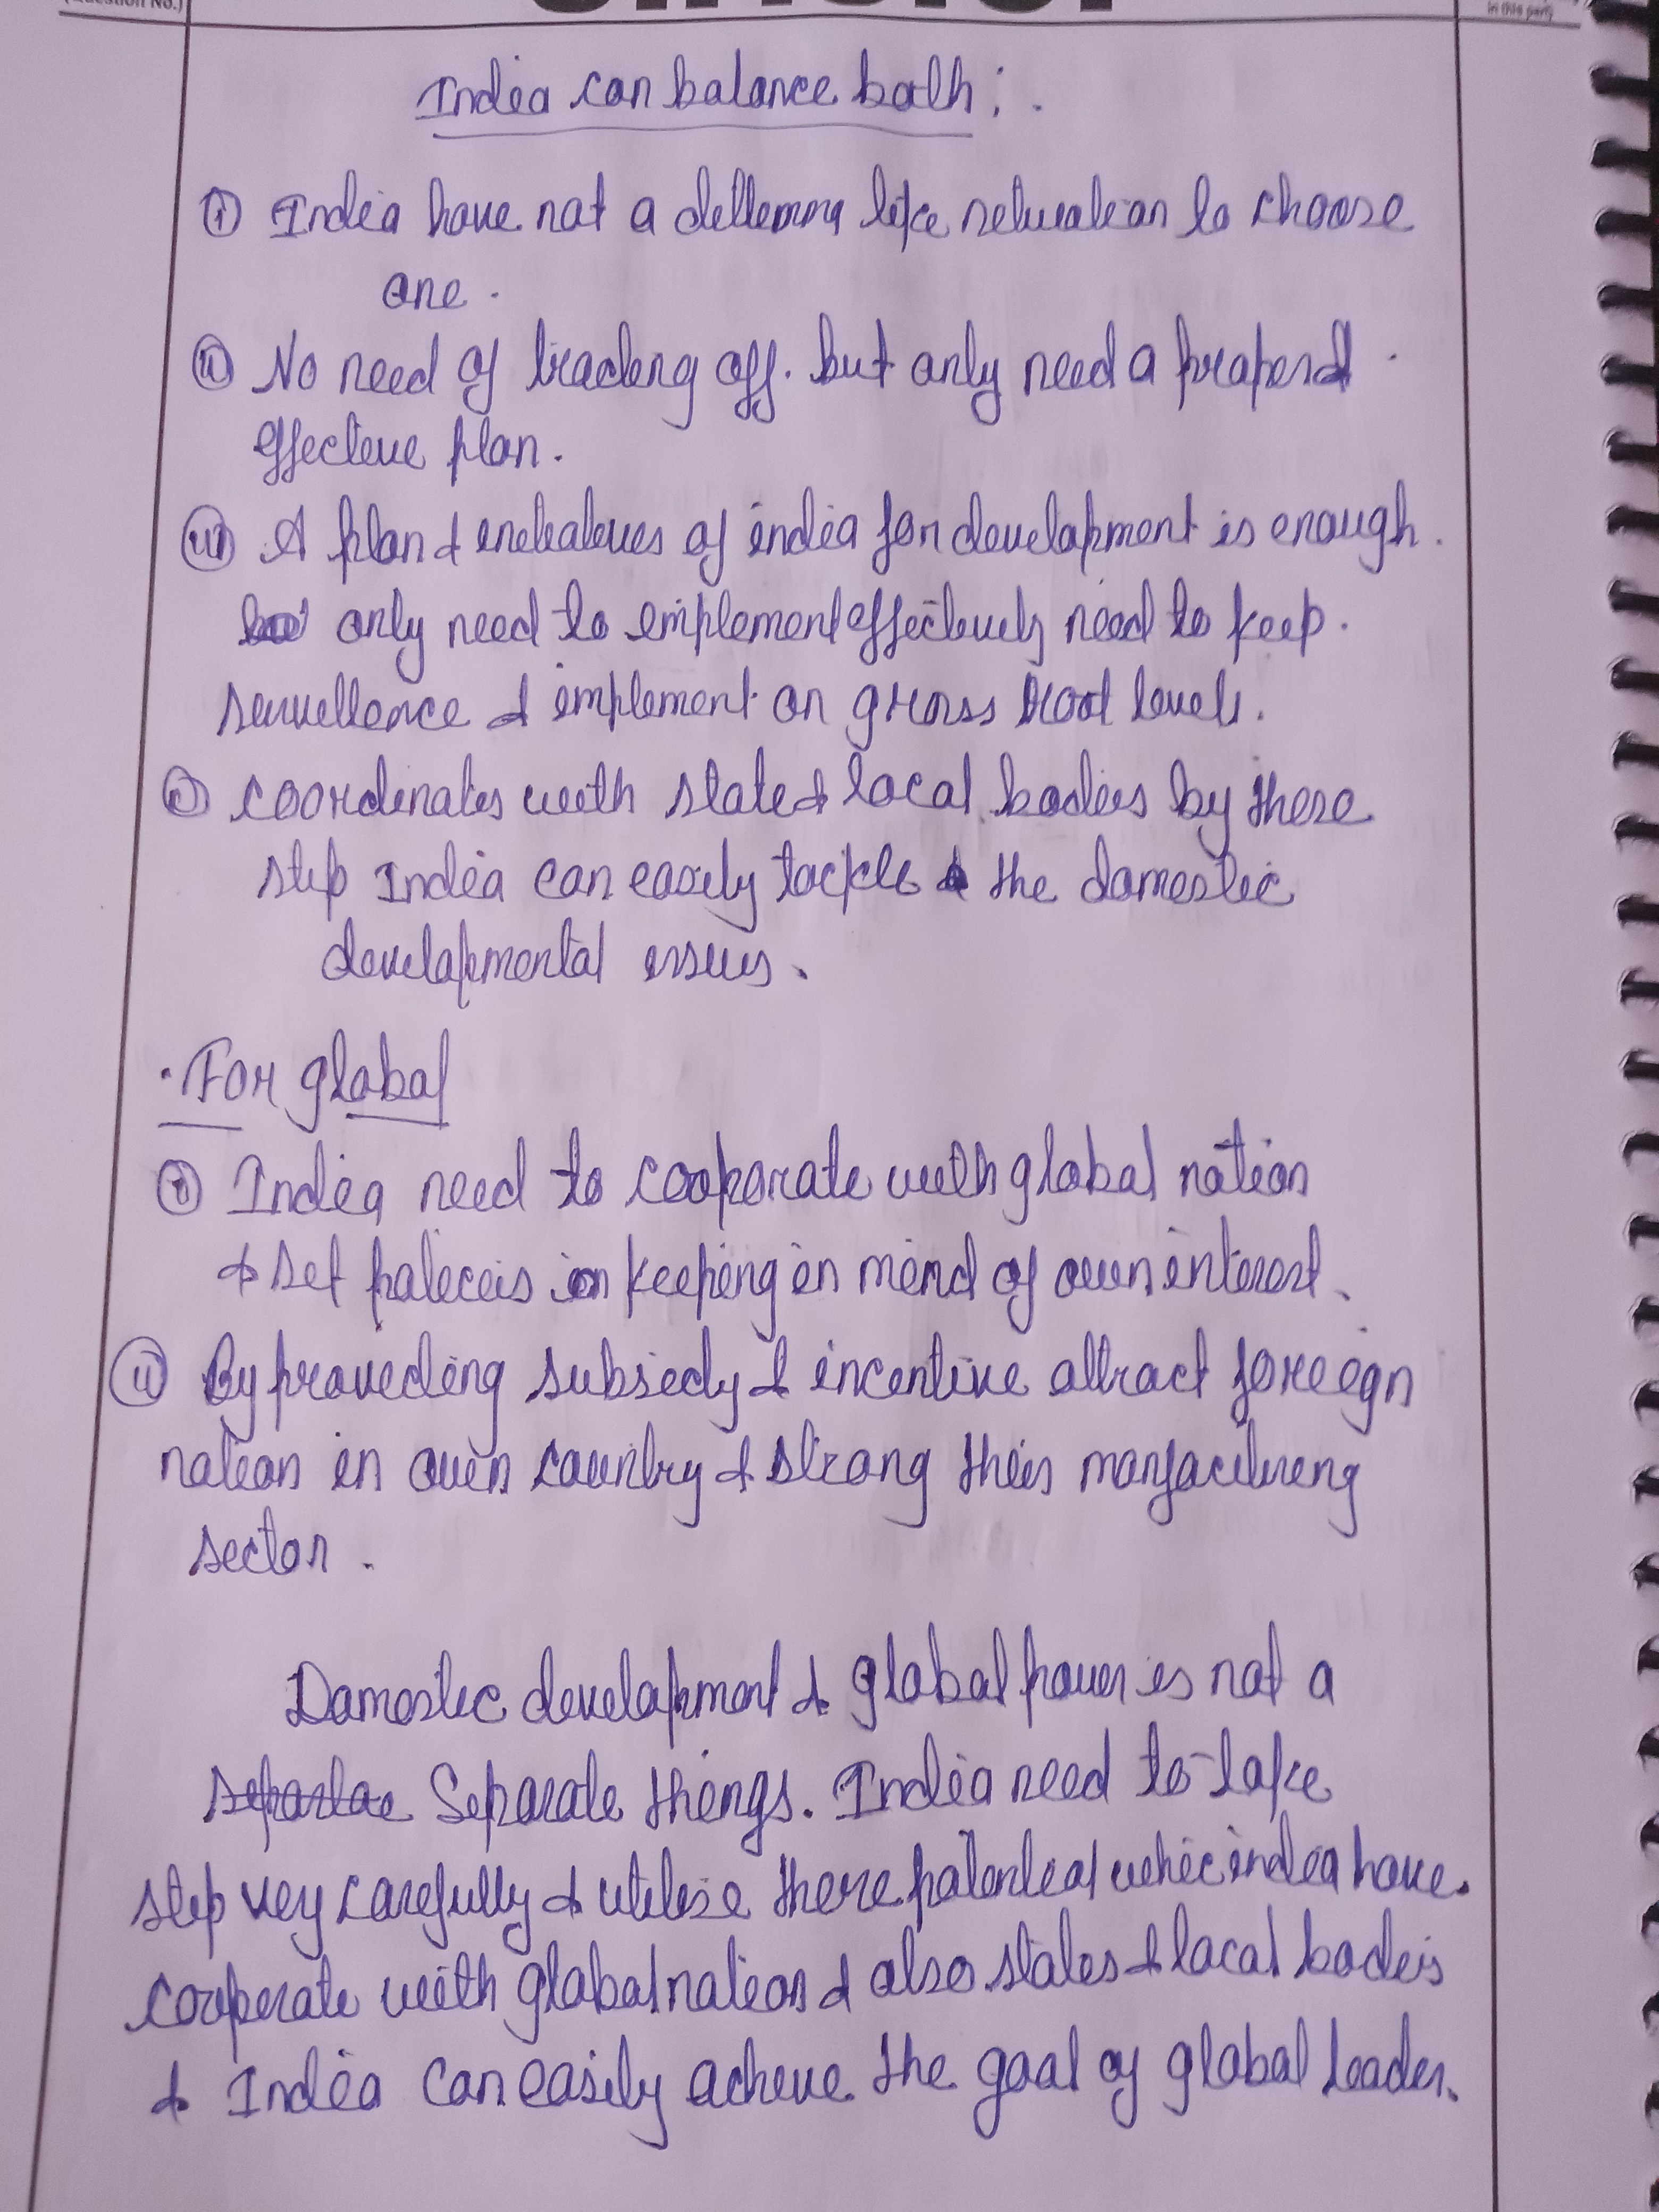 (Question No.)
in this part)
India can balance both :.
(i) India have not a dellemma like situation to choose
one.
(ii) No need of trading off. but only need a proper &
effective plan.
(iii) A plan & initiatives of india for development is enough.
only need to implement effectively need to keep.
survellence & implement on grass root levels.
coordinates with state & local bodies by these
step India can easily tackle the domestic
developmental issues.
. For global
(i) India need to cooporate with global nation
& set policeis in keeping in mind of own interest.
(ii) By provieding subsiedy & incentive attract foreign
nation in own country & strong their manfacturing
sector.
Domestic development & global power is not a
separtae Separate things. India need to take
step vey carefully & utilise there potential whic india have.
cooperate with global nation & also states & local bodeis
& India can easily acheve the goal of global leader.